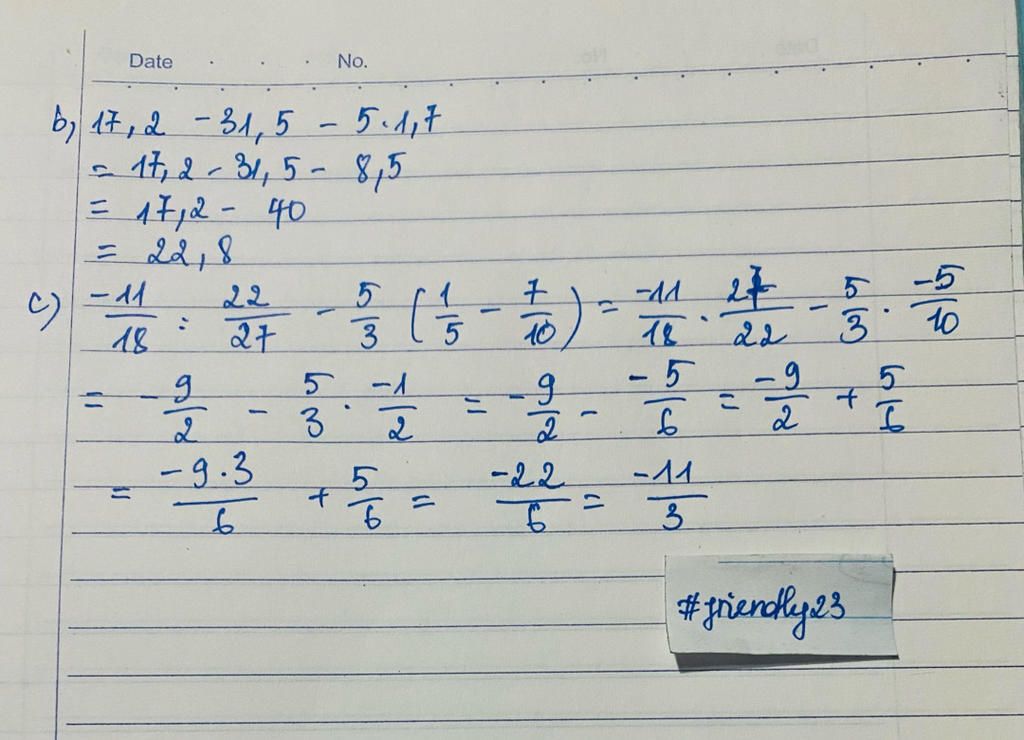 Date . . . No.
b, 17,2 - 31,5 - 5.1,7
= 17,2 - 31,5 - 8,5
= 17,2 - 40
= 22,8
c) -11/18 : 22/27 - 5/3 (1/5 - 7/10) = -11/18 . 27/22 - 5/3 . -5/10
= -9/2 - 5/3 . -1/2 = -9/2 - -5/6 = -9/2 + 5/6
= -9.3/6 + 5/6 = -22/6 = -11/3
#friendly23